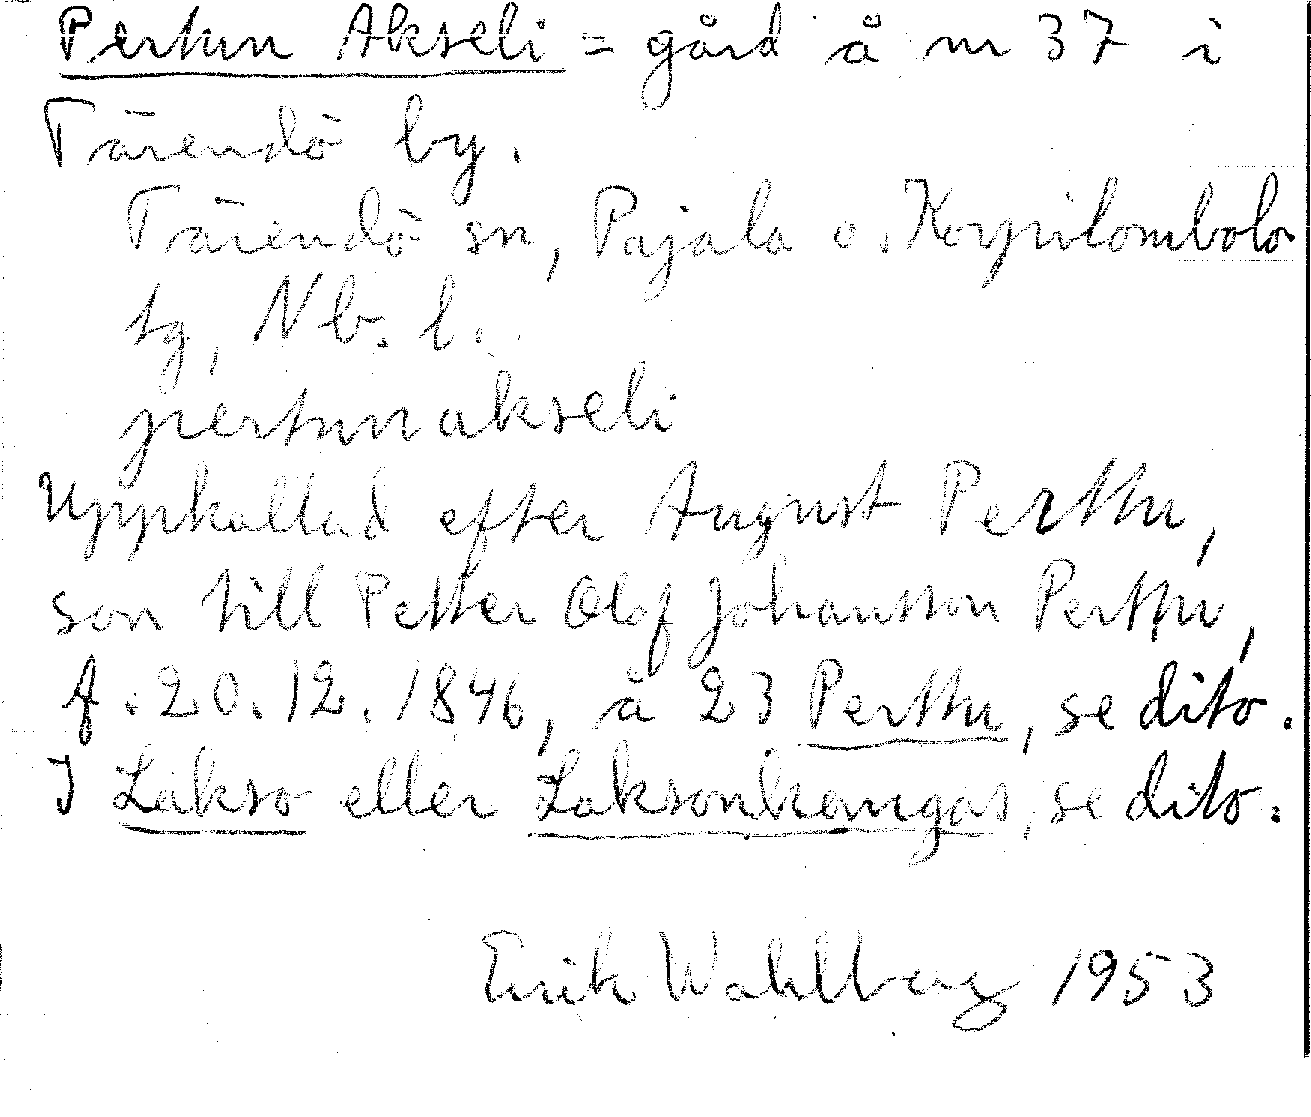 Pertun Akseli = gård å nr 37 i
Tärendö by.
Tärendö sn, Pajala o. Korpilombolo
tg, Nb. l.
pertun akseli
Uppkallad efter August Perttu,
son till Petter Olof Johansson Perttu,
f. 20.12.1846, å 23 Perttu, se dito.
I Lakso eller Laksonkangas, se dito.
Erik Wahlberg 1953